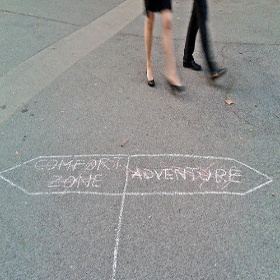 COMFORT
ZONE
ADVENTURE